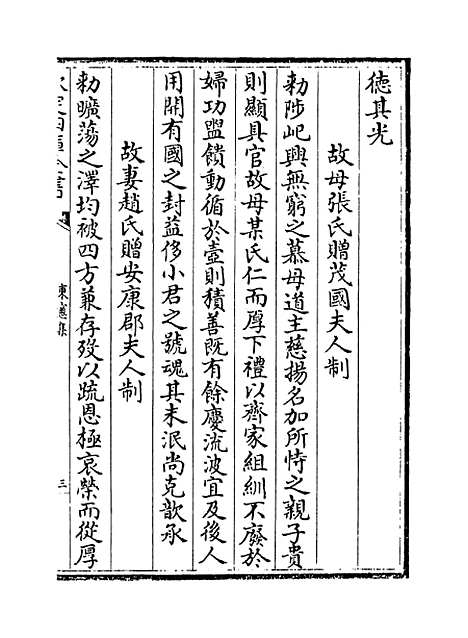 徳其光
故母張氏贈茂國夫人制
勅陟屺興無窮之慕母道主慈揚名加所恃之親子貴
則顯具官故母某氏仁而厚下禮以齊家組紃不廢於
婦功盥饋動循於壼則積善既有餘慶流波宜及後人
用開有國之封益侈小君之號魂其未泯尚克歆承
故妻趙氏贈安康郡夫人制
勅曠蕩之澤均被四方兼存殁以疏恩極哀榮而從厚
欽定四庫全書
東窻集
三